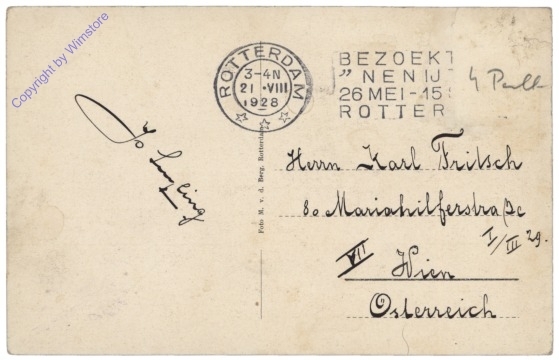 Copyright by Wimstore
ROTTERDAM
3-4N
21 VIII
1928
BEZOEKT
" NENIJT
26 MEI-15
ROTTER
Foto M. v. d. Berg, Rotterdam
Herrn Karl Fritsch
80 Mariahilferstraße
I/III 29.
VII Wien
Österreich